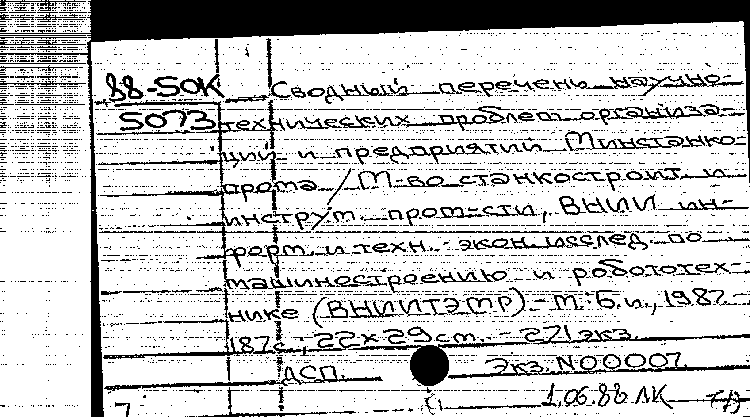 88-50К Сводный перечень научно-
5073 технических проблем организа-
ций и предприятий Минстанко-
прома / М-во станкостроит. и
инструм. пром-сти, ВНИИ ин-
форм. и техн.-экон. исслед. по
машиностроению и робототех-
нике (ВНИИТЭМР).-М.:Б.и., 1987.-
187с.; 22х29см. - 271экз.
ДСП. Экз.N00007.
1.06.88 ЛК